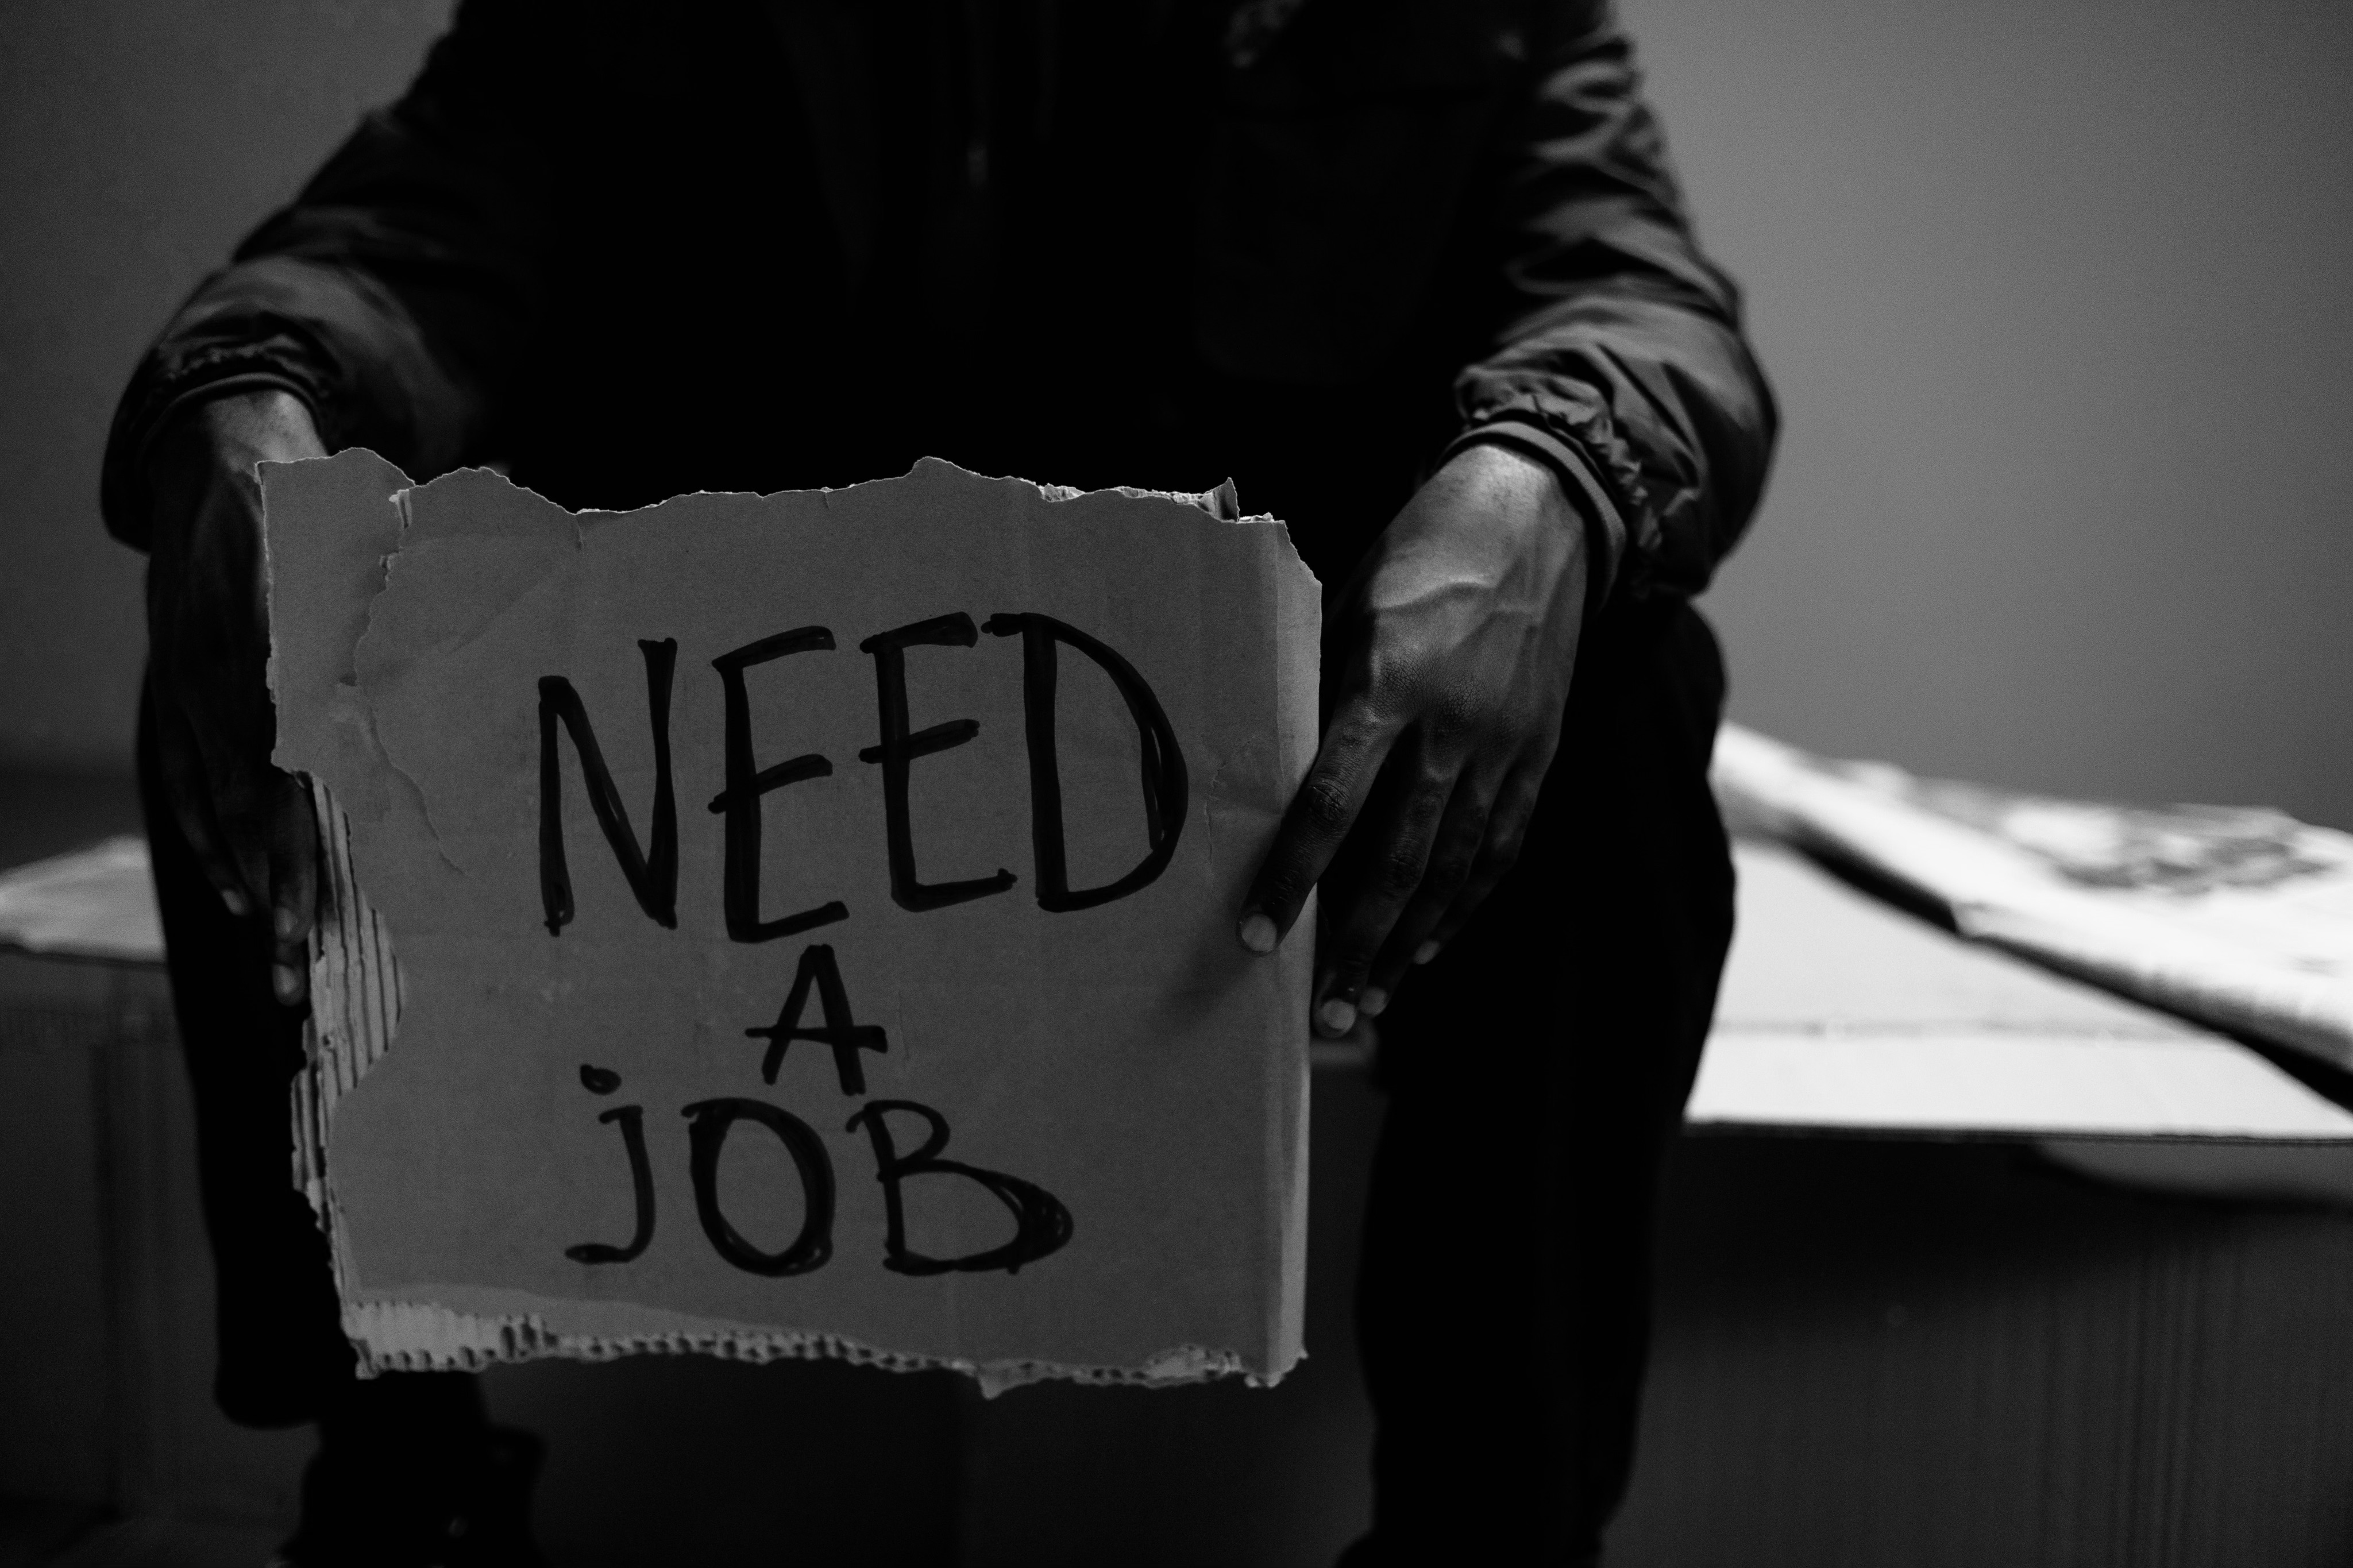 NEED
A
jOB